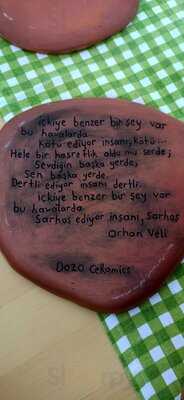 içkiye benzer bir şey var
bu havalarda
Kötü ediyor insanı, kötü...
Hele bir hasretlik oldu mu serde;
Sevdiğin başka yerde,
Sen başka yerde.
Dertli ediyor insanı dertli...
içkiye benzer bir şey var
bu havalarda
Sarhoş ediyor insanı, sarhoş
Orhan Veli
Dozo Ceramics